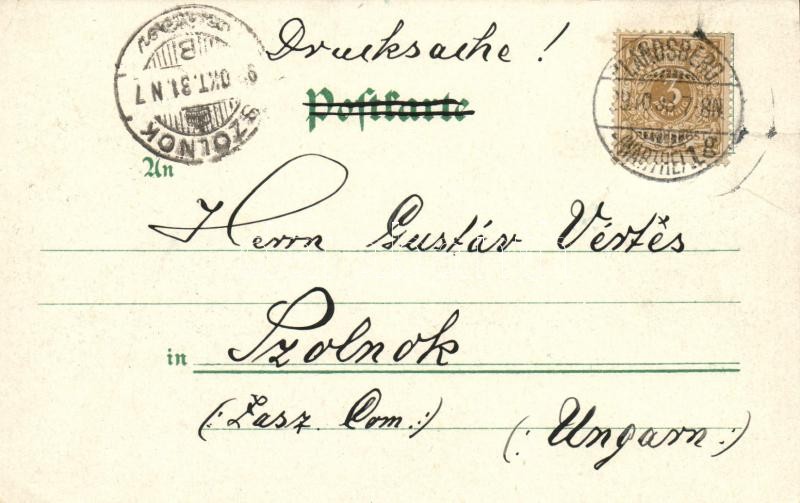 Drucksache !
Postkarte
SZOLNOK
OKT. 31. N 7
B
LANDSBERG
7-8N.
(WARTHE) 1 g
3
An
Herrn Gustáv Vértés
in Szolnok
(: Jasz. Com. :) (: Ungarn :)